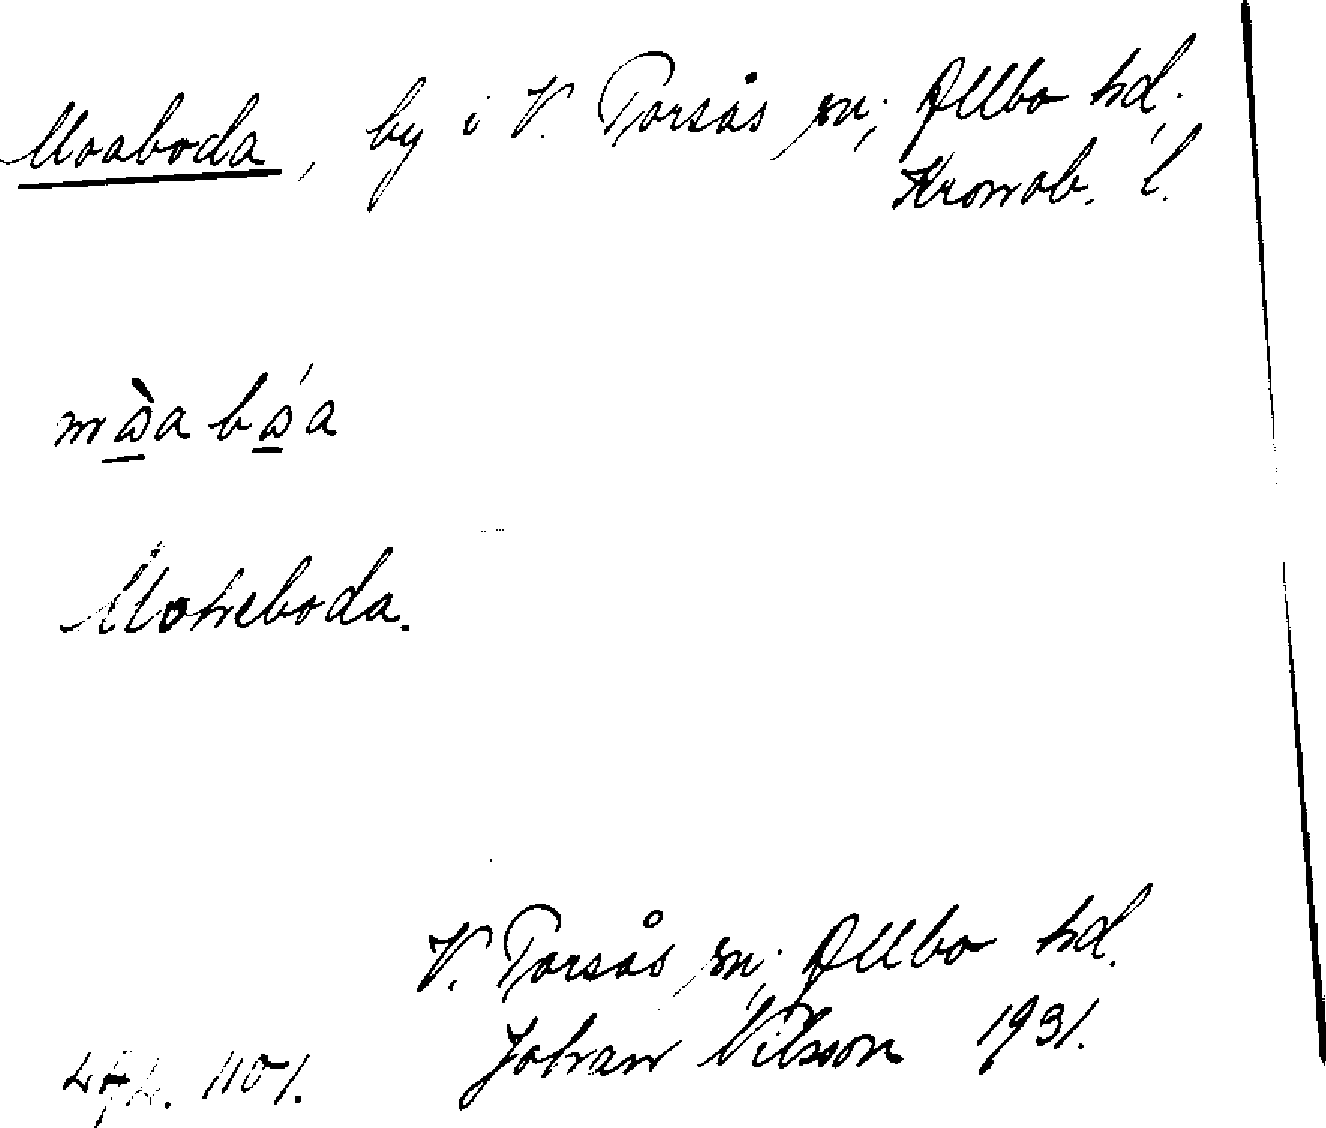 Moaboda, by i V. Torsås sn; Allbo hd;
Kronob. l.
Moheboda.
V. Torsås sn; Allbo hd.
Johan Nilsson 1931.